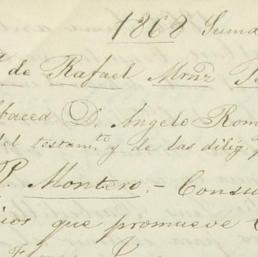 1868 Suma
de Rafael
D. Angelo Rom
del testamto y de las dilig
P. Montero.- Consu
ios que promueve